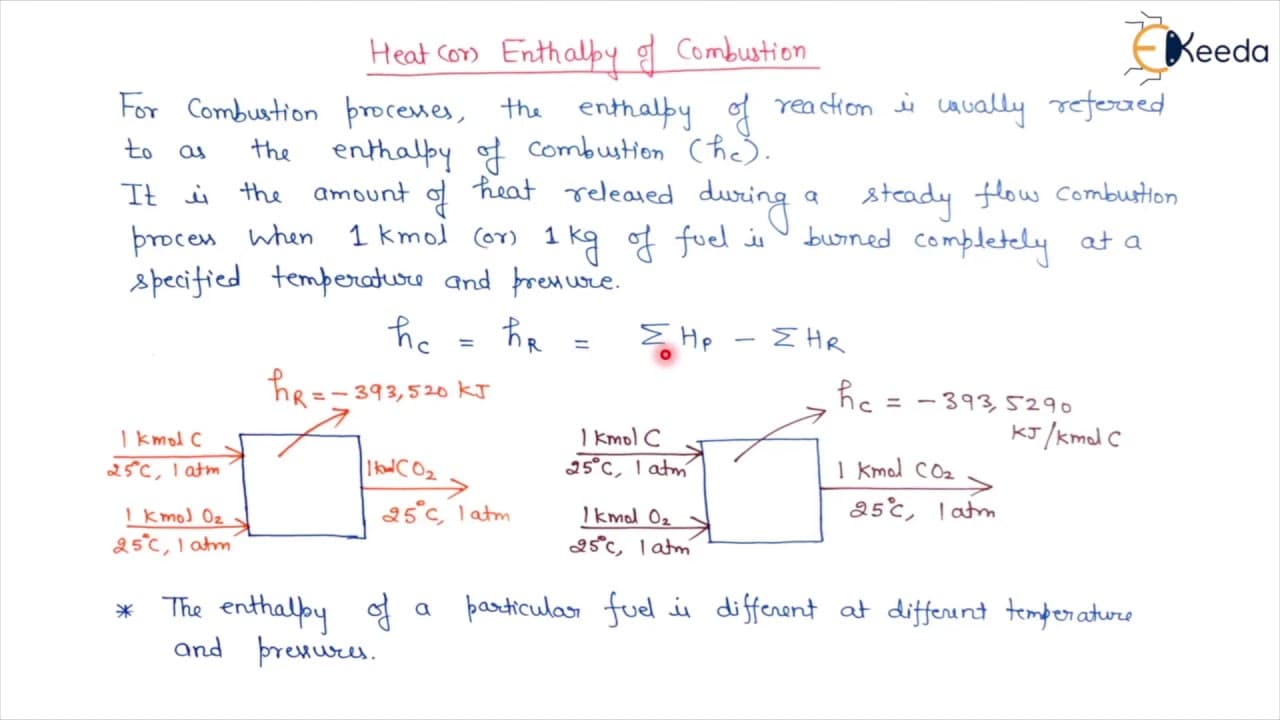 Heat (or) Enthalpy of Combustion
EKeeda
For Combustion processes, the enthalpy of reaction is usually referred
to as the enthalpy of combustion (hc).
It is the amount of heat released during a steady flow combustion
process when 1 kmol (or) 1 kg of fuel is burned completely at a
specified temperature and pressure.
hc = hR = Σ HP - Σ HR
hR = -393,520 KJ
1 kmol C
25°C, 1 atm
1 kmol O2
25°C, 1 atm
1 kmol CO2
25°C, 1 atm
hc = -393,5290
KJ/kmol C
1 kmol C
25°C, 1 atm
1 kmol O2
25°C, 1 atm
1 Kmol CO2
25°C, 1 atm
* The enthalpy of a particular fuel is different at different temperature
and pressures.